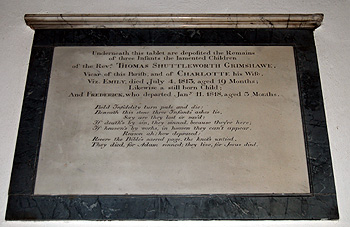 Underneath this tablet are deposited the Remains
of three Infants the lamented Children
of the Revd. THOMAS SHUTTLEWORTH GRIMSHAWE,
Vicar of this Parish, and of CHARLOTTE his Wife,
Viz. EMILY, died July 4, 1815, aged 19 Months;
Likewise a still born Child;
And FREDERICK, who departed Jany. 11. 1818, aged 5 Months.
Bold Infidelity turn pale and die:
Beneath this stone three Infants' ashes lie,
Say are they lost or sav'd:
If death's by sin, they sinned, because they're here;
If heaven's by works, in heaven they can't appear.
Reason ah, how depraved:
Revere the Bible's sacred page the knot's untied.
They died, for Adam sinned; they live, for Jesus died.